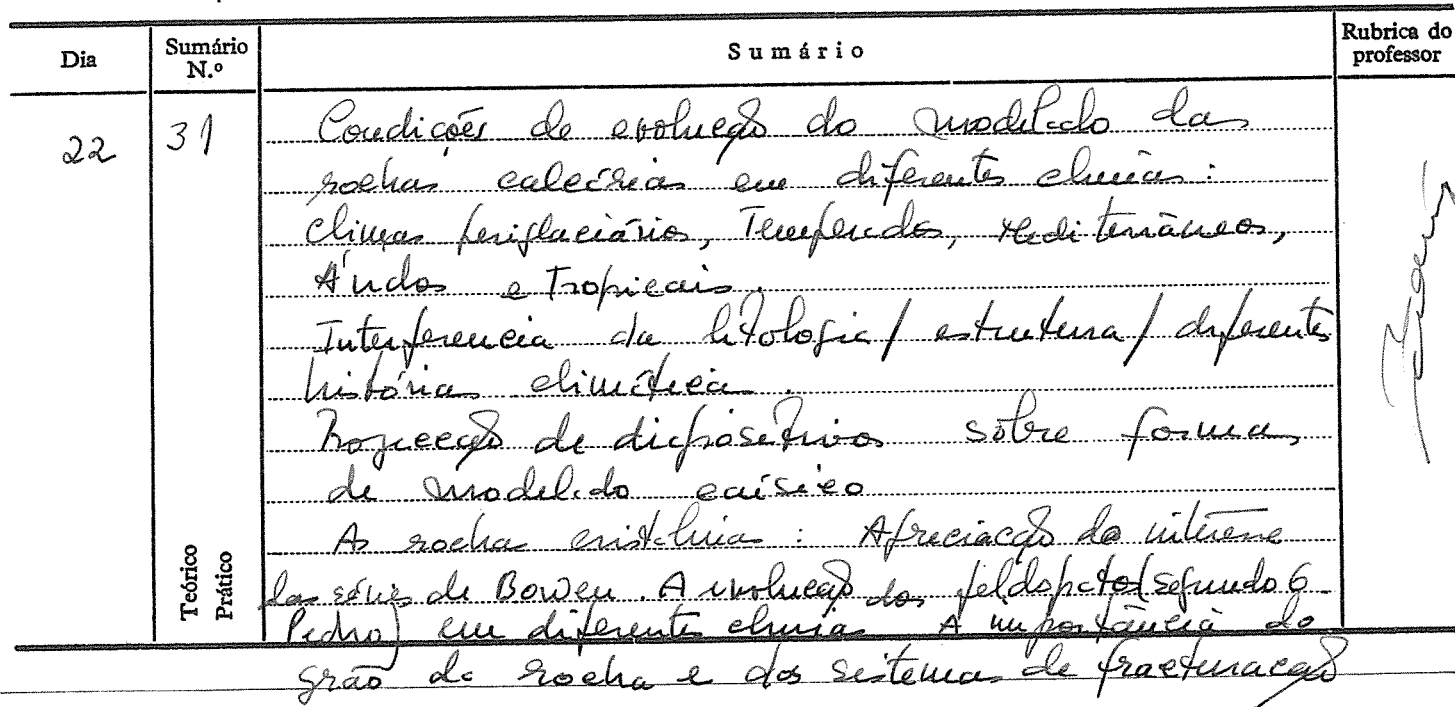 Dia
Sumário N.º
Sumário
Rubrica do professor
22
31
Condições de evolução do modelado das
rochas calcárias em diferentes climas:
climas periglaciários, Temperados, Mediterrâneos,
Áridos e Tropicais.
Interferencia da litologia / estrutura / diferentes
histórias climáticas.
Projecção de diapositivos sobre formas
de modelado cársico
As rochas cristalinas: Apreciação do
das séries de Bowen. A evolução dos feldspatos (segundo G.
Pedro) em diferentes climas A importância do
grão da rocha e dos sistemas de fracturação
Teórico
Prático